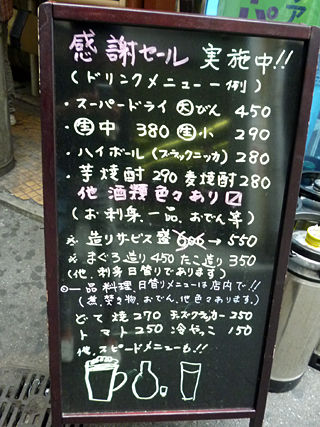 感謝セール 実施中!!
(ドリンクメニュー一例)
・スーパードライ 大びん 450
・生中 380 生小 290
・ハイボール(ブラックニッカ) 280
・芋焼酎 290 麦焼酎 280
他 酒類色々あり〼
(お刺身、一品、おでん等)
※ 造りサービス盛 900 → 550
※ まぐろ造り 450 たこ造り 350
(他、刺身日替りであります)
◎一品料理、日替りメニューは店内で!!
(煮焚き物、おでん、他色々あります。)
どて焼 270 チーズクラッカー 250
トマト 250 冷やっこ 150
他、スピードメニューも!!